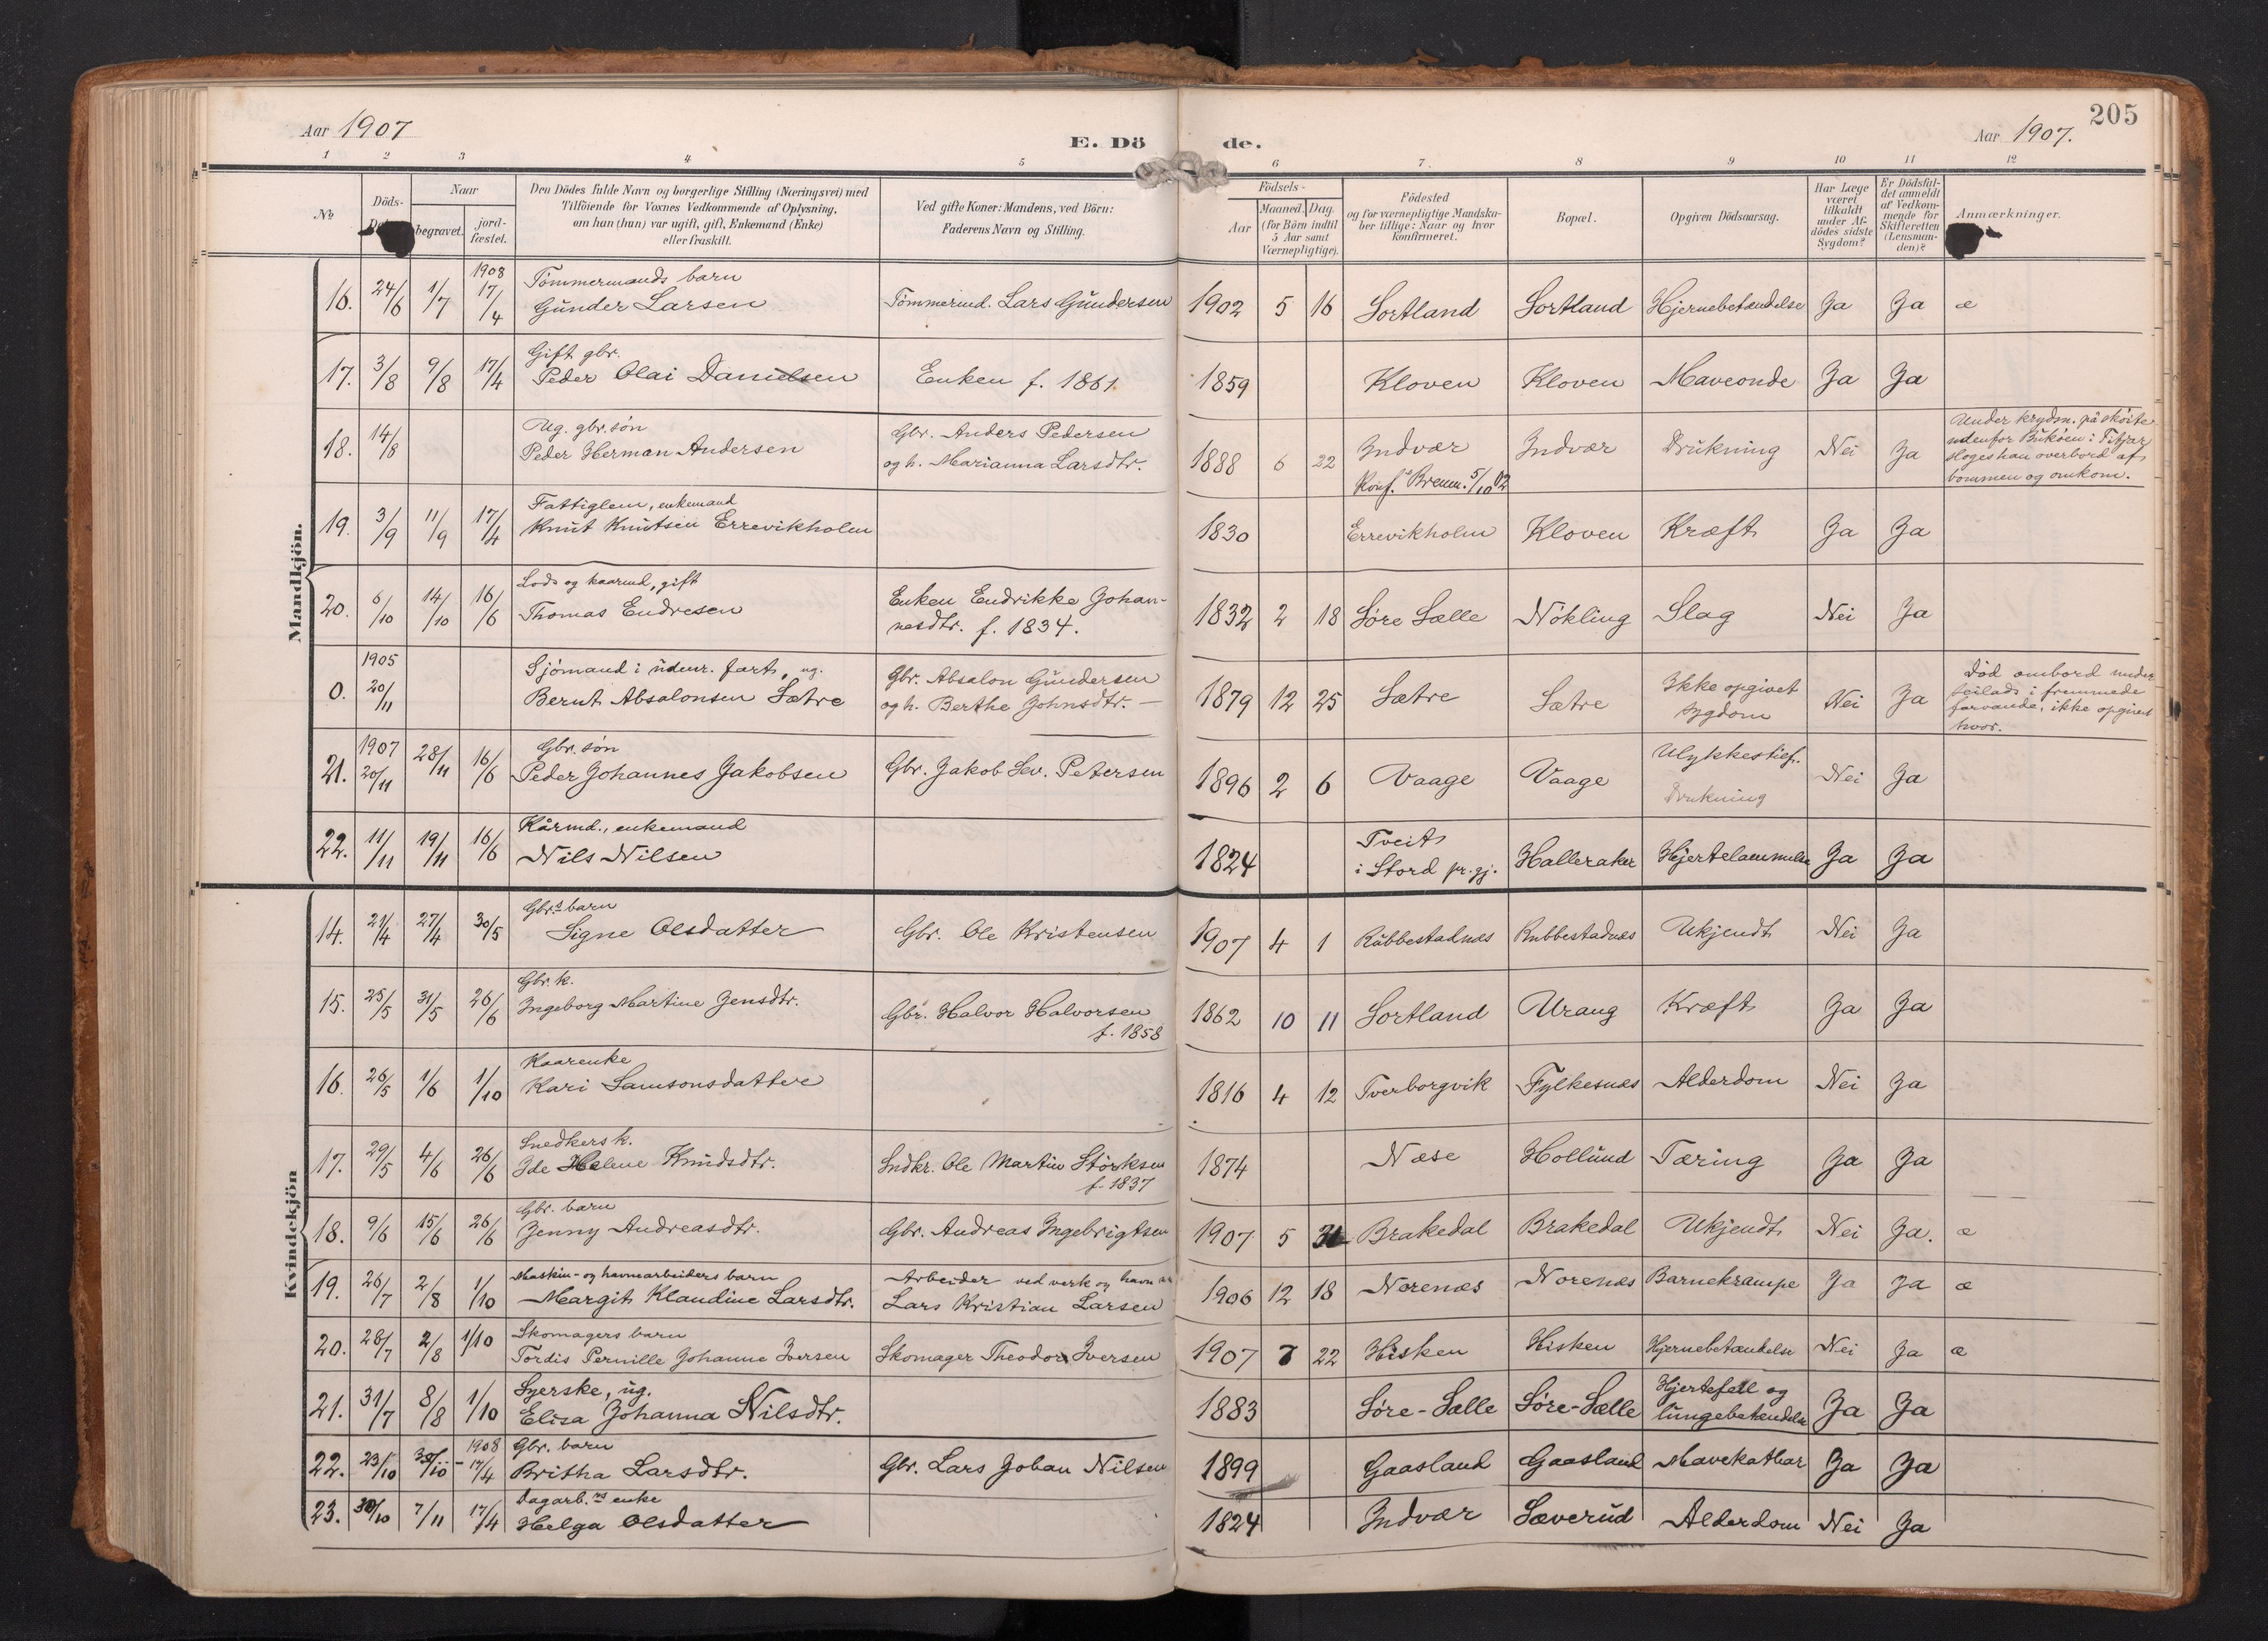 205
Aar 1907
E. Dö de.
Aar 1907.
1 2 3 4 5 6 7. 8 9 10 11 12
№
Döds-
Naar
begravet.
jord-
fæstet.
Den Dödes fulde Navn og borgerlige Stilling (Næringsvei) med
Tilföiende for Voxnes Vedkommende af Oplysning,
om han (hun) var ugift, gift, Enkemand (Enke)
eller fraskilt.
Ved gifte Koner: Mandens, ved Börn:
Faderens Navn og Stilling.
Födsels-
Aar
Maaned. Dag.
(for Börn indtil
5 Aar samt
Værnepligtige).
Födested
og for værnepligtige Mandska-
ber tillige: Naar og hvor
konfirmeret.
Bopæl.
Opgiven Dödsaarsag.
Har Læge
været
tilkaldt
under Af-
dödes sidste
Sygdom?
Er Dödsfal-
det anmeldt
af Vedkom-
mende for
Skifteretten
(Lensman-
den)?
Anmærkninger.
Mandkjön.
1908
Tömmermands barn
16. 24/6 1/7 17/4 Gunder Larsen Tömmermd. Lars Gundersen 1902 5 16 Sortland Sortland Hjernebetændelse Ja Ja æ
Gift gbr.
17. 3/8 9/8 17/4 Peder Olai Danielsen Enken f. 1861 1859 Kloven Kloven Maveonde Ja Ja
Ug. gbr. søn
18. 14/8 Peder Herman Andersen
Gbr. Anders Pedersen
og h. Marianna Larsdtr.
1888 6 22 Indvær
Konf. Bremn. 5/10 02
Indvær Drukning Nei Ja
Under krydsn. på skøite
udenfor Bukøen i Fitjar
sloges han overbord af
bommen og omkom.
Fattiglem, enkemand
19. 3/9 11/9 17/4 Knut Knutsen Errevikholm 1830 Errevikholm Kloven Kræft Ja Ja
Lods og kaarmd, gift
20. 6/10 14/10 16/6 Thomas Endresen
Enken Endrikke Johan-
nesdtr. f. 1834.
1832 2 18 Søre Sælle Nökling Slag Nei Ja
1905
Sjömand i udenr. fart, ug.
0. 20/11 Bernt Absalonsen Sætre
Gbr. Absalon Gundersen
og h. Berthe Johnsdtr. —
1879 12 25 Sætre Sætre
Ikke opgivet
sygdom
Nei Ja
Död ombord under
seilads i fremmede
farvande, ikke opgivet
hvor.
1907
Gbr. søn
21. 20/11 28/11 16/6 Peder Johannes Jakobsen Gbr. Jakob Sev. Petersen 1896 2 6 Vaage Vaage
Ulykkestilf.
Drukning
Nei Ja
Kårmd., enkemand
22. 11/11 19/11 16/6 Nils Nilsen 1824
Tveit
i Stord pr.gj.
Halleraker Hjertelammelse Ja Ja
Kvindekjön
Gbr.s barn
14. 21/4 27/4 30/5 Signe Olsdatter Gbr. Ole Kristensen 1907 4 1 Rubbestadnæs Rubbestadnæs Ukjendt Nei Ja
Gbr. k.
15. 25/5 31/5 26/6 Ingeborg Martine Jensdtr.
Gbr. Halvor Halvorsen
f. 1858
1862 10 11 Sortland Urang Kræft Ja Ja
Kaarenke
16. 26/5 1/6 1/10 Kari Samsonsdatter 1816 4 12 Tverborgvik Fylkesnæs Alderdom Nei Ja
Snedkers k.
17. 29/5 4/6 26/6 Ide Helene Knudsdtr.
Sndkr. Ole Martin Störksen
f. 1837
1874 Næse Hollund Tæring Ja Ja
Gbr. barn
18. 9/6 15/6 26/6 Jenny Andreasdtr. Gbr. Andreas Ingebrigtsen 1907 5 31 Brakedal Brakedal Ukjendt Nei Ja. æ
Maskin- og havnearbeiders barn
19. 26/7 2/8 1/10 Margit Klaudine Larsdtr.
Arbeider ved verk og havn
Lars Kristian Larsen
1906 12 18 Norenæs Norenæs Barnekrampe Ja Ja æ
Skomagers barn
20. 28/7 2/8 1/10 Tordis Pernille Johanne Iversen Skomager Theodor Iversen 1907 7 22 Hisken Hisken Hjernebetændelse Nei Ja æ
Syerske, ug.
21. 31/7 8/8 1/10 Elisa Johanna Nilsdtr. 1883 Søre-Sælle Søre-Sælle
Hjertefeil og
lungebetændelse
Ja Ja
1908
Gbr. barn
22. 23/10 30/10 17/4 Britha Larsdtr. Gbr. Lars Johan Nilsen 1899 Gaasland Gaasland Mavekathar Ja Ja
Dagarb.rs enke
23. 30/10 7/11 17/4 Helga Olsdatter 1824 Indvær Sæverud Alderdom Nei Ja